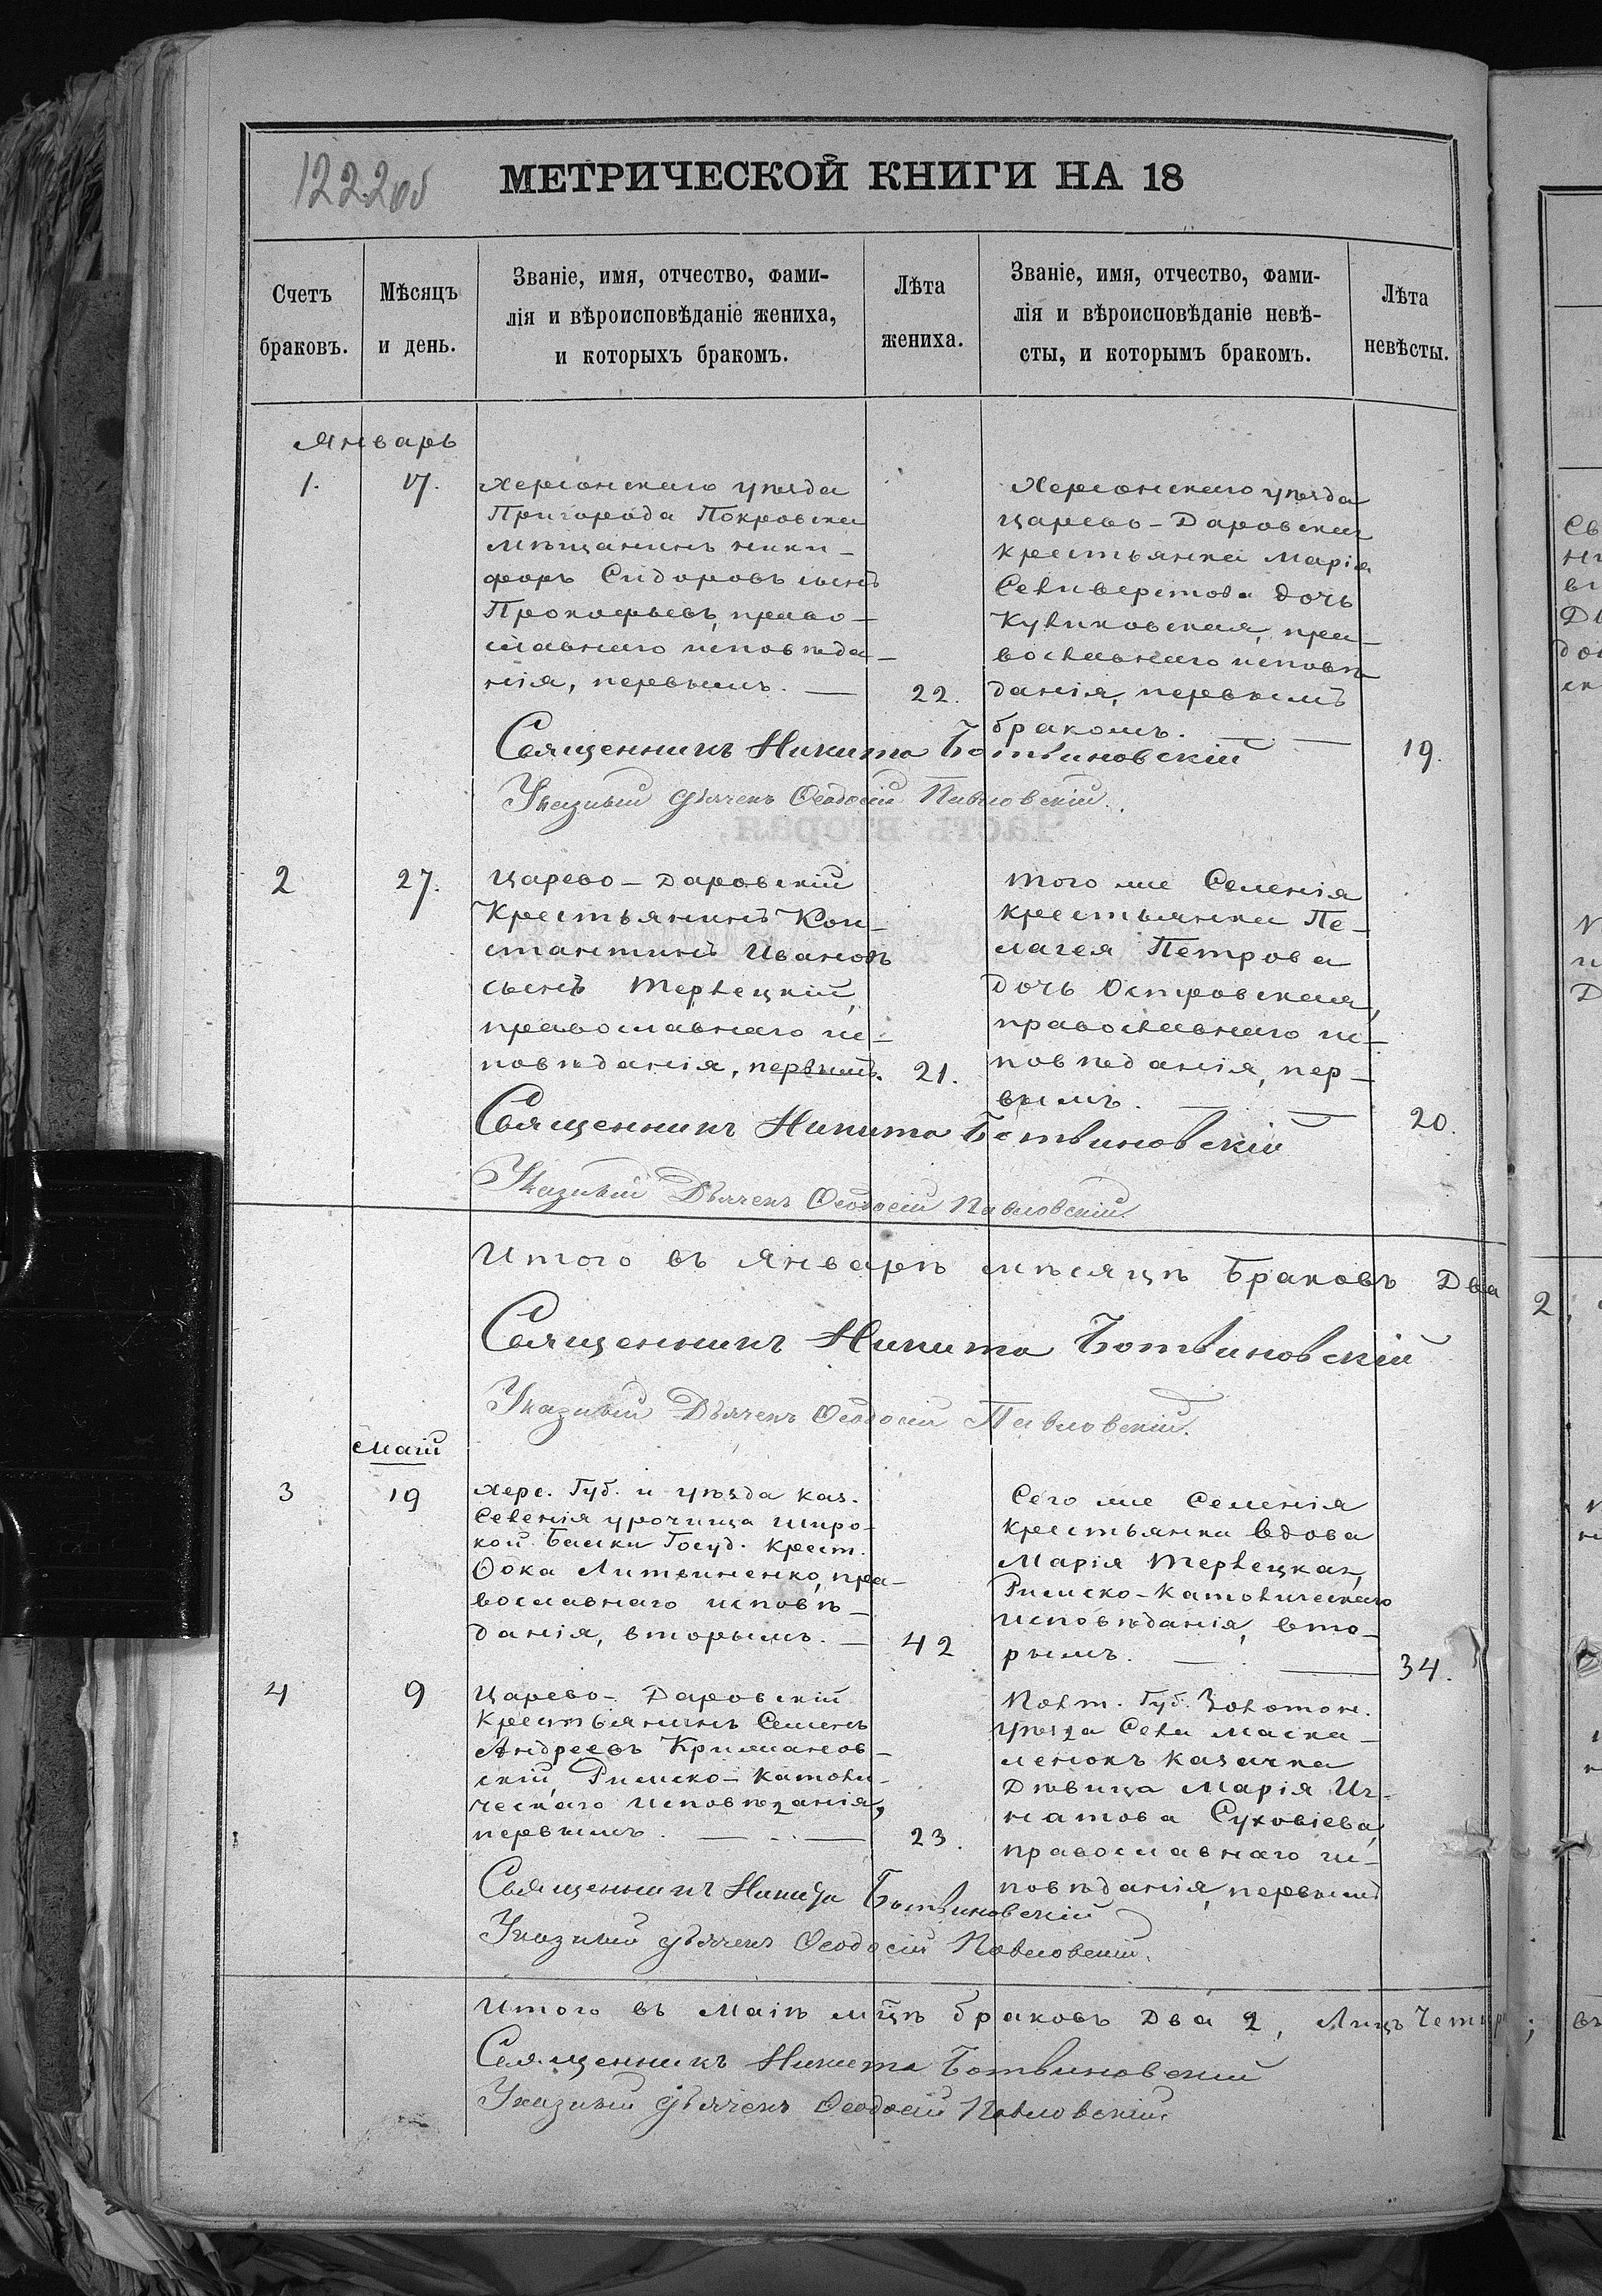 1222 об
МЕТРИЧЕСКОЙ КНИГИ НА 18
Счетъ
браковъ.
Мѣсяцъ
и день.
Званіе, имя, отчество, фами-
лія и вѣроисповѣданіе жениха,
и которыхъ бракомъ.
Лѣта
жениха.
Званіе, имя, отчество, фами-
лія и вѣроисповѣданіе невѣ-
сты, и которымъ бракомъ.
Лѣта
невѣсты.
Январь
1.
17.
Херсонскаго уѣзда
Пригорода Покровска
мѣщанинъ Ники-
форъ Сидоровъ сынъ
Прокофьевъ, право-
славнаго исповѣда-
нія, первымъ. —
22.
Херсонскаго уѣзда
Царево-Даровская
крестьянка Марія
Селиверстова дочь
Куликовская, пра-
вославнаго исповѣ
данія, первымъ
бракомъ. — —
19.
Священникъ Никита Ботвиновскій
Указный дьячекъ Ѳеодосій Павловскій.
2
27.
Царево-Даровскій
Крестьянинъ Кон-
стантинъ Ивановъ
сынъ Терлецкій,
православнаго ис-
повѣданія, первымъ.
21.
того же Селенія
крестьянка Пе-
лагея Петрова
дочь Островская,
православнаго ис-
повѣданія, пер-
вымъ. — —
20.
Священникъ Никита Ботвиновскій
Указный Дьячекъ Ѳеодосій Павловскій.
Итого въ Январѣ мѣсяцѣ Браковъ Два
Священникъ Никита Ботвиновскій
Указный Дьячекъ Ѳеодосій Павловскій.
Маій
3
19
Херс. Губ. и уѣзда каз.
Селенія урочища Широ-
кой Балки Госуд. Крест.
Ѳока Литвиненко, пра-
вославнаго исповѣ-
данія, вторымъ. —
42
Сего же Селенія
крестьянка вдова
Марія Терлецкая,
Римско-Католическаго
исповѣданія, вто-
рымъ. — —
34.
4
9
Царево-Даровскій
Крестьянинъ Семенъ
Андреевъ Крижанов-
скій, Римско-Католи-
ческаго исповѣданія,
первымъ. — —
23.
Полт. Губ. Золотон.
уѣзда Села Маска-
ленокъ казачка
Дѣвица Марія Иг-
натова Суховіева,
православнаго ис-
повѣданія, первымъ
Священникъ Никита Ботвиновскій
Указный дьячекъ Ѳеодосій Павловскій.
Итого въ Маіѣ мцѣ браковъ Два 2, Лицъ Четыре;
Священникъ Никита Ботвиновскій
Указный дьячекъ Ѳеодосій Павловскій.